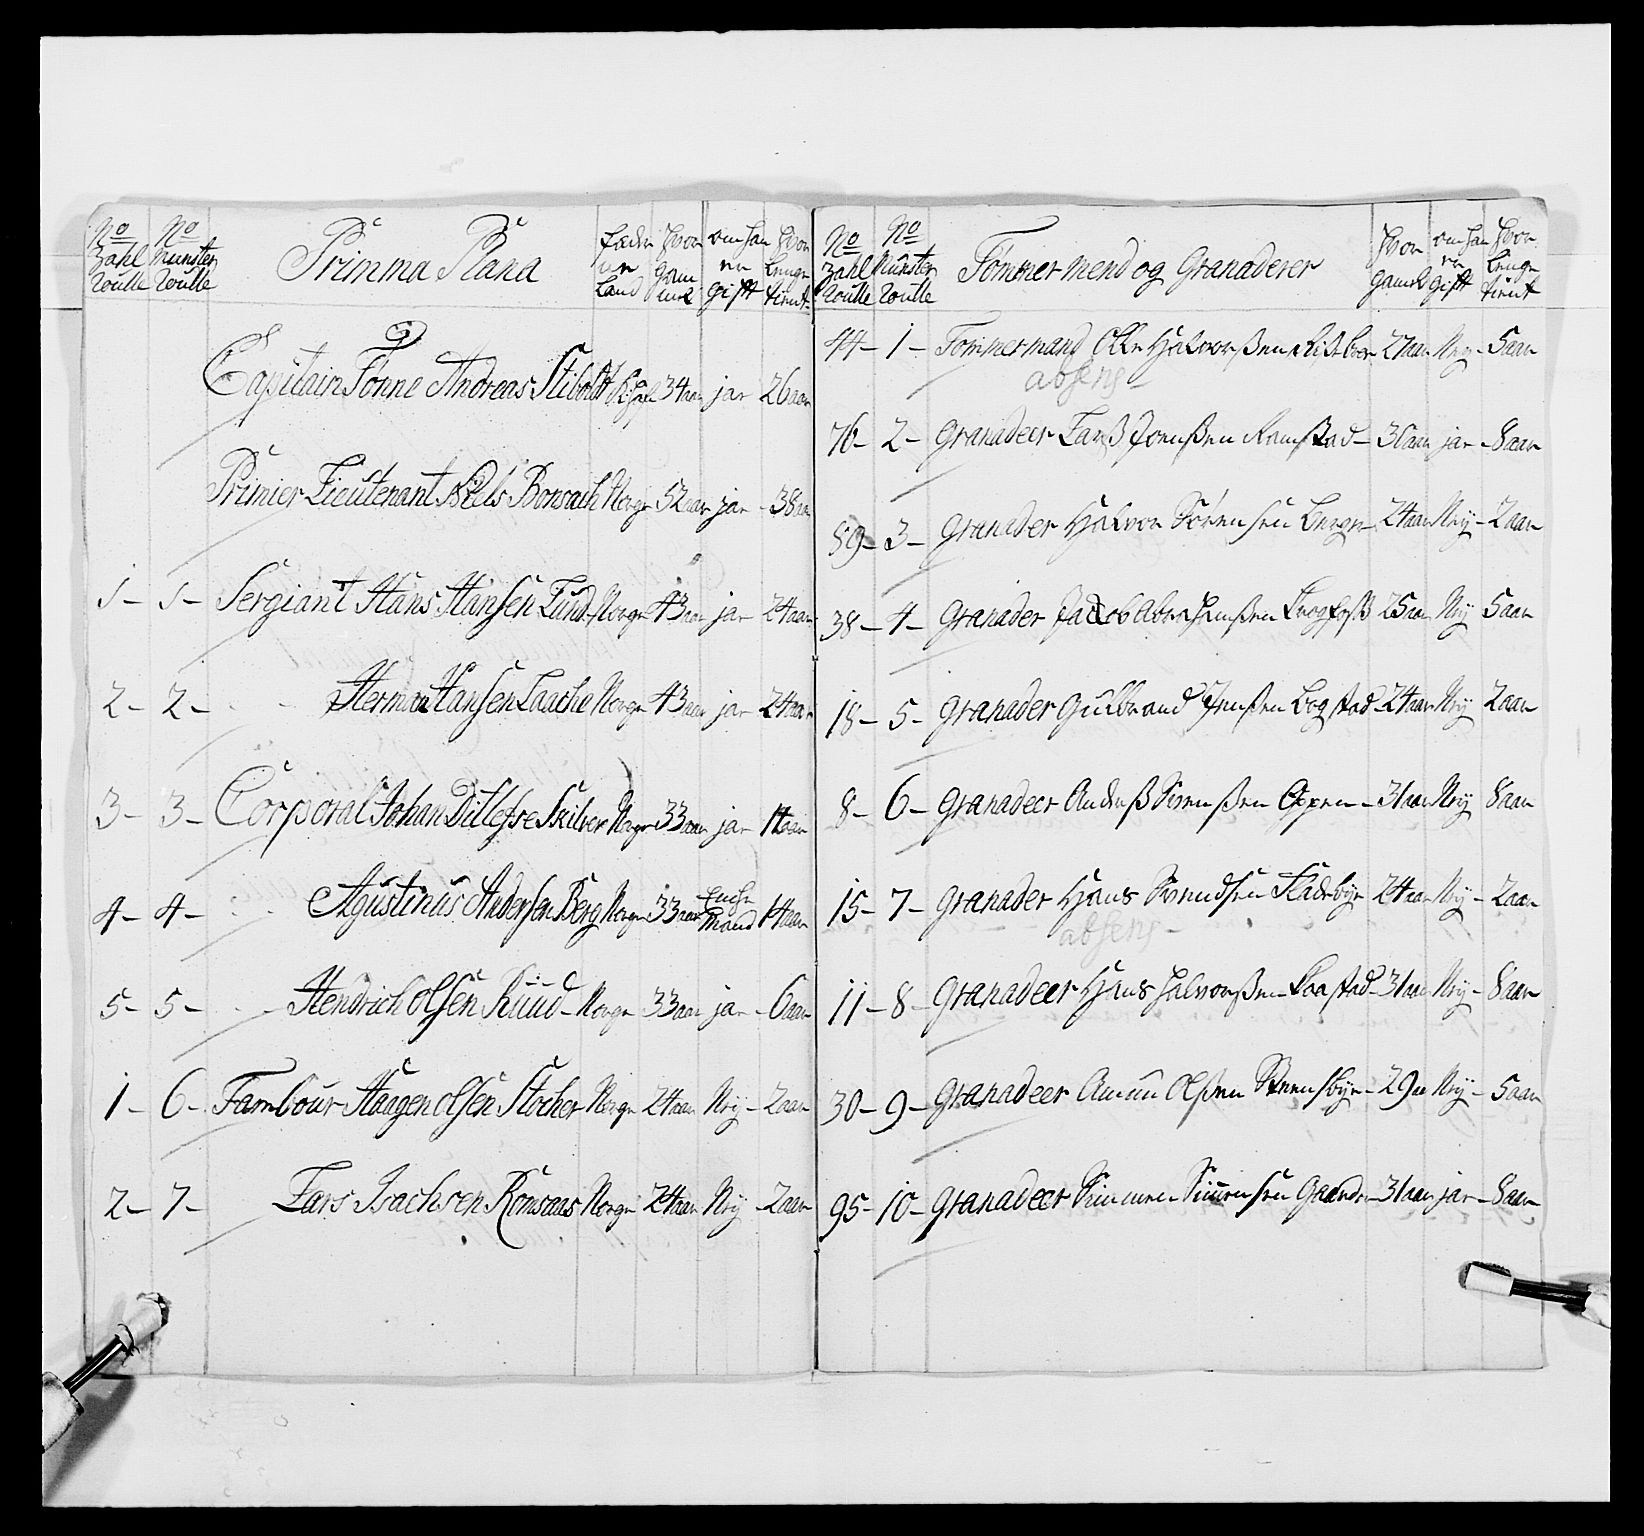 No Zahl Roulle No Munster Roulle Primma Plana Fæderne Land Hvor gammel om han er gifft Hvor lenge tient
Capitain Tönne Andreas Stiboldt 34 aar jar 26 aar
Primier Lieutenant Niels Bonsach Norge 52 aar jar - 38 aar
1 - 1 - Sergiant Hans Hansen Lund - Norge 43 aar jar 24 aar
2 - 2 - Herman Hansen Laache Norge 43 aar jar 24 aar
3 - 3 - Corporal Johan Ditlefse Norge 33 aar jar 14 aar
4 - 4 - Agustinus Andersen Berg Norge 33 aar Enche Mand 14 aar
5 - 5 - Hendrich Olsen Ruud - Norge 33 aar jar - 6 aar
1 - 6 - Tambour Haagen Olsen Stocher Norge 24 aar Nij - 2 aar
2 - 7 - Lars Isachsen Norge 24 aar Nij - 2 aar
No Zahl Roulle No Munster Roulle Tömmermend og Granaderer Hvor gamel om han er gifft Hvor lenge tient
44 - 1 - Tömmermand Olle Halvorßen 27 aar Nej - 5 aar
absens -
76 - 2 - Granadeer Larß Ramstad - 30 aar jar - 8 aar
89 - 3 - Granader Halvor Sörensen Berge - 24 aar Nij - 2 aar
38 - 4 - Granader Jacob Abrahamßen 25 aar Nij 5 aar
18 - 5 - Granader Gulbrand Jenßen Bogstad - 24 aar Nij 2 aar
8 - 6 - Granadeer Anderß - 31 aar Nij 8 aar
15 - 7 - Granader Hans Svendsen Fladebye 24 aar Nij - 2 aar
absens -
11 - 8 - Granadeer Hans Halvorßen - 31 aar Nij - 8 aar
30 - 9 - Granadeer Olßen - 29 Nij - 5 aar
95 - 10 - Granadeer Simen Simensen 31 aar jar - 8 aar